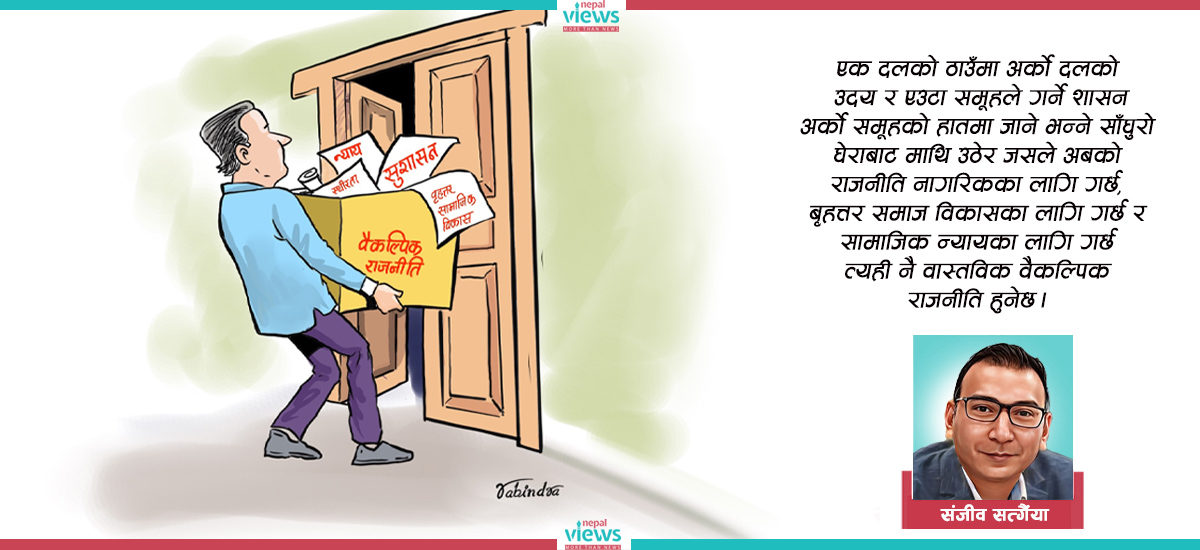 nepal
views
MORE THAN NEWS
न्याय
सुशासन
स्थीरता
वृहत्तर
सामाजिक
विकास
वैकल्पिक
राजनीति
Rabindra
एक दलको ठाउँमा अर्को दलको
उदय र एउटा समूहले गर्ने शासन
अर्को समूहको हातमा जाने भन्ने साँघुरो
घेराबाट माथि उठेर जसले अबको
राजनीति नागरिकका लागि गर्छ,
बृहत्तर समाज विकासका लागि गर्छ र
सामाजिक न्यायका लागि गर्छ
त्यही नै वास्तविक वैकल्पिक
राजनीति हुनेछ ।
संजीव सत्गैंया
nepal
views
MORE THAN NEWS